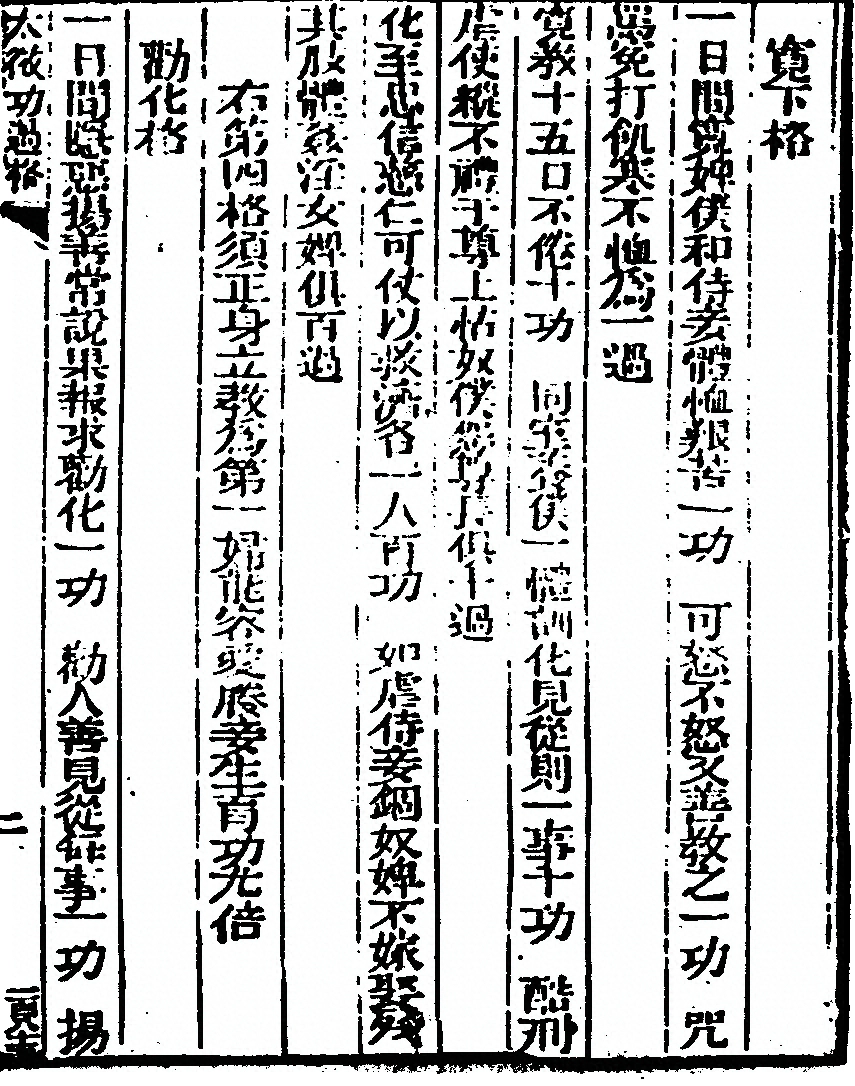 寬下格
一日間寬婢僕和侍妾體恤艱苦一功　可怒不怒又善教之一功　咒
罵寃打飢寒不恤爲一過
寬教十五口不倦十功　同室妾僕一體訓化見從則一事十功　酷刑
虐使縱不體于尊上怙奴僕俱十過
化至忠信慈仁可仗以救濟各一人百功　如虐侍妾錮奴婢不嫁娶殘
其肢體姦淫女婢俱百過
右第四格須正身立教爲第一婦能容愛勝妾生育功尤倍
勸化格
一日間隱惡揚善常說果報求勸化一功　勸人善見從每事一功　揚
太微功過格
二